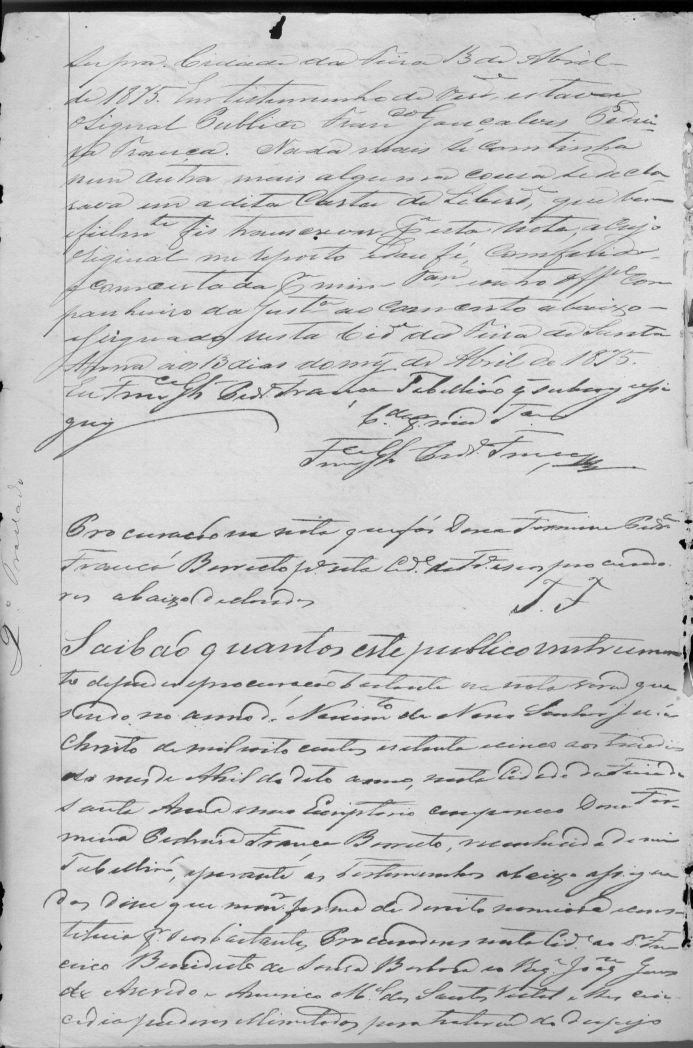 ser pra. Cidade da Feira 13 de Abril
de 1875. Em testemunho de verde estava
o Signal Publico Franco Gonçalves Pedrei
ra França. Nada mais se continha
nem outra mais alguma cousa se decla
rava em a dita Carta de Liberde, que bem
fielmte fiz transcrever nesta Nota, a cujo
Original me reporto e dou fé, conferido
e concertada por mim Tam com outro Offal Com
panheiro da Justa ao concerto abaixo
assignado nesta Cide da Feira de Santa
Anna aos 13 dias do mez de Abril de 1875.
Eu Franco Glz Pedra França Tabellião q subscry e assi
gney
C. da por mim Tam
Franco Glz Pedra França
2º Traslado
Procuração na nota que fás Dona Firmina Pedra
França Barretto pa nesta Cide da Fa e seos procurado
res abaixo declarados
T. F.
Saibão quantos este publico instrumen
to de poder e procuração bastante na nota virem que
sendo no anno do Nascimto de Nosso Senhor Jesús
Christo de mil oito centos e setenta e cinco aos treze dias
do mes de Abril do dito anno, nesta Cidade da Feira de
Santa Anna em meo Escriptorio compareceo Dona Fir
mina Pedreira França Barretto, reconhecida de mim
Tabellião, e perante as testemunhas abaixo assigna
das disse que na mor forma de direito nomeava e cons
tituia pr seos bastantes Procuradores nesta Cide ao Sr Fran
cisco Benedicto de Souza Barbosa eo Joaqm
de Azevedo e Americo Ml dos Santos Vital e lhes con
cedia poderes illimitados para tratarem do despejo